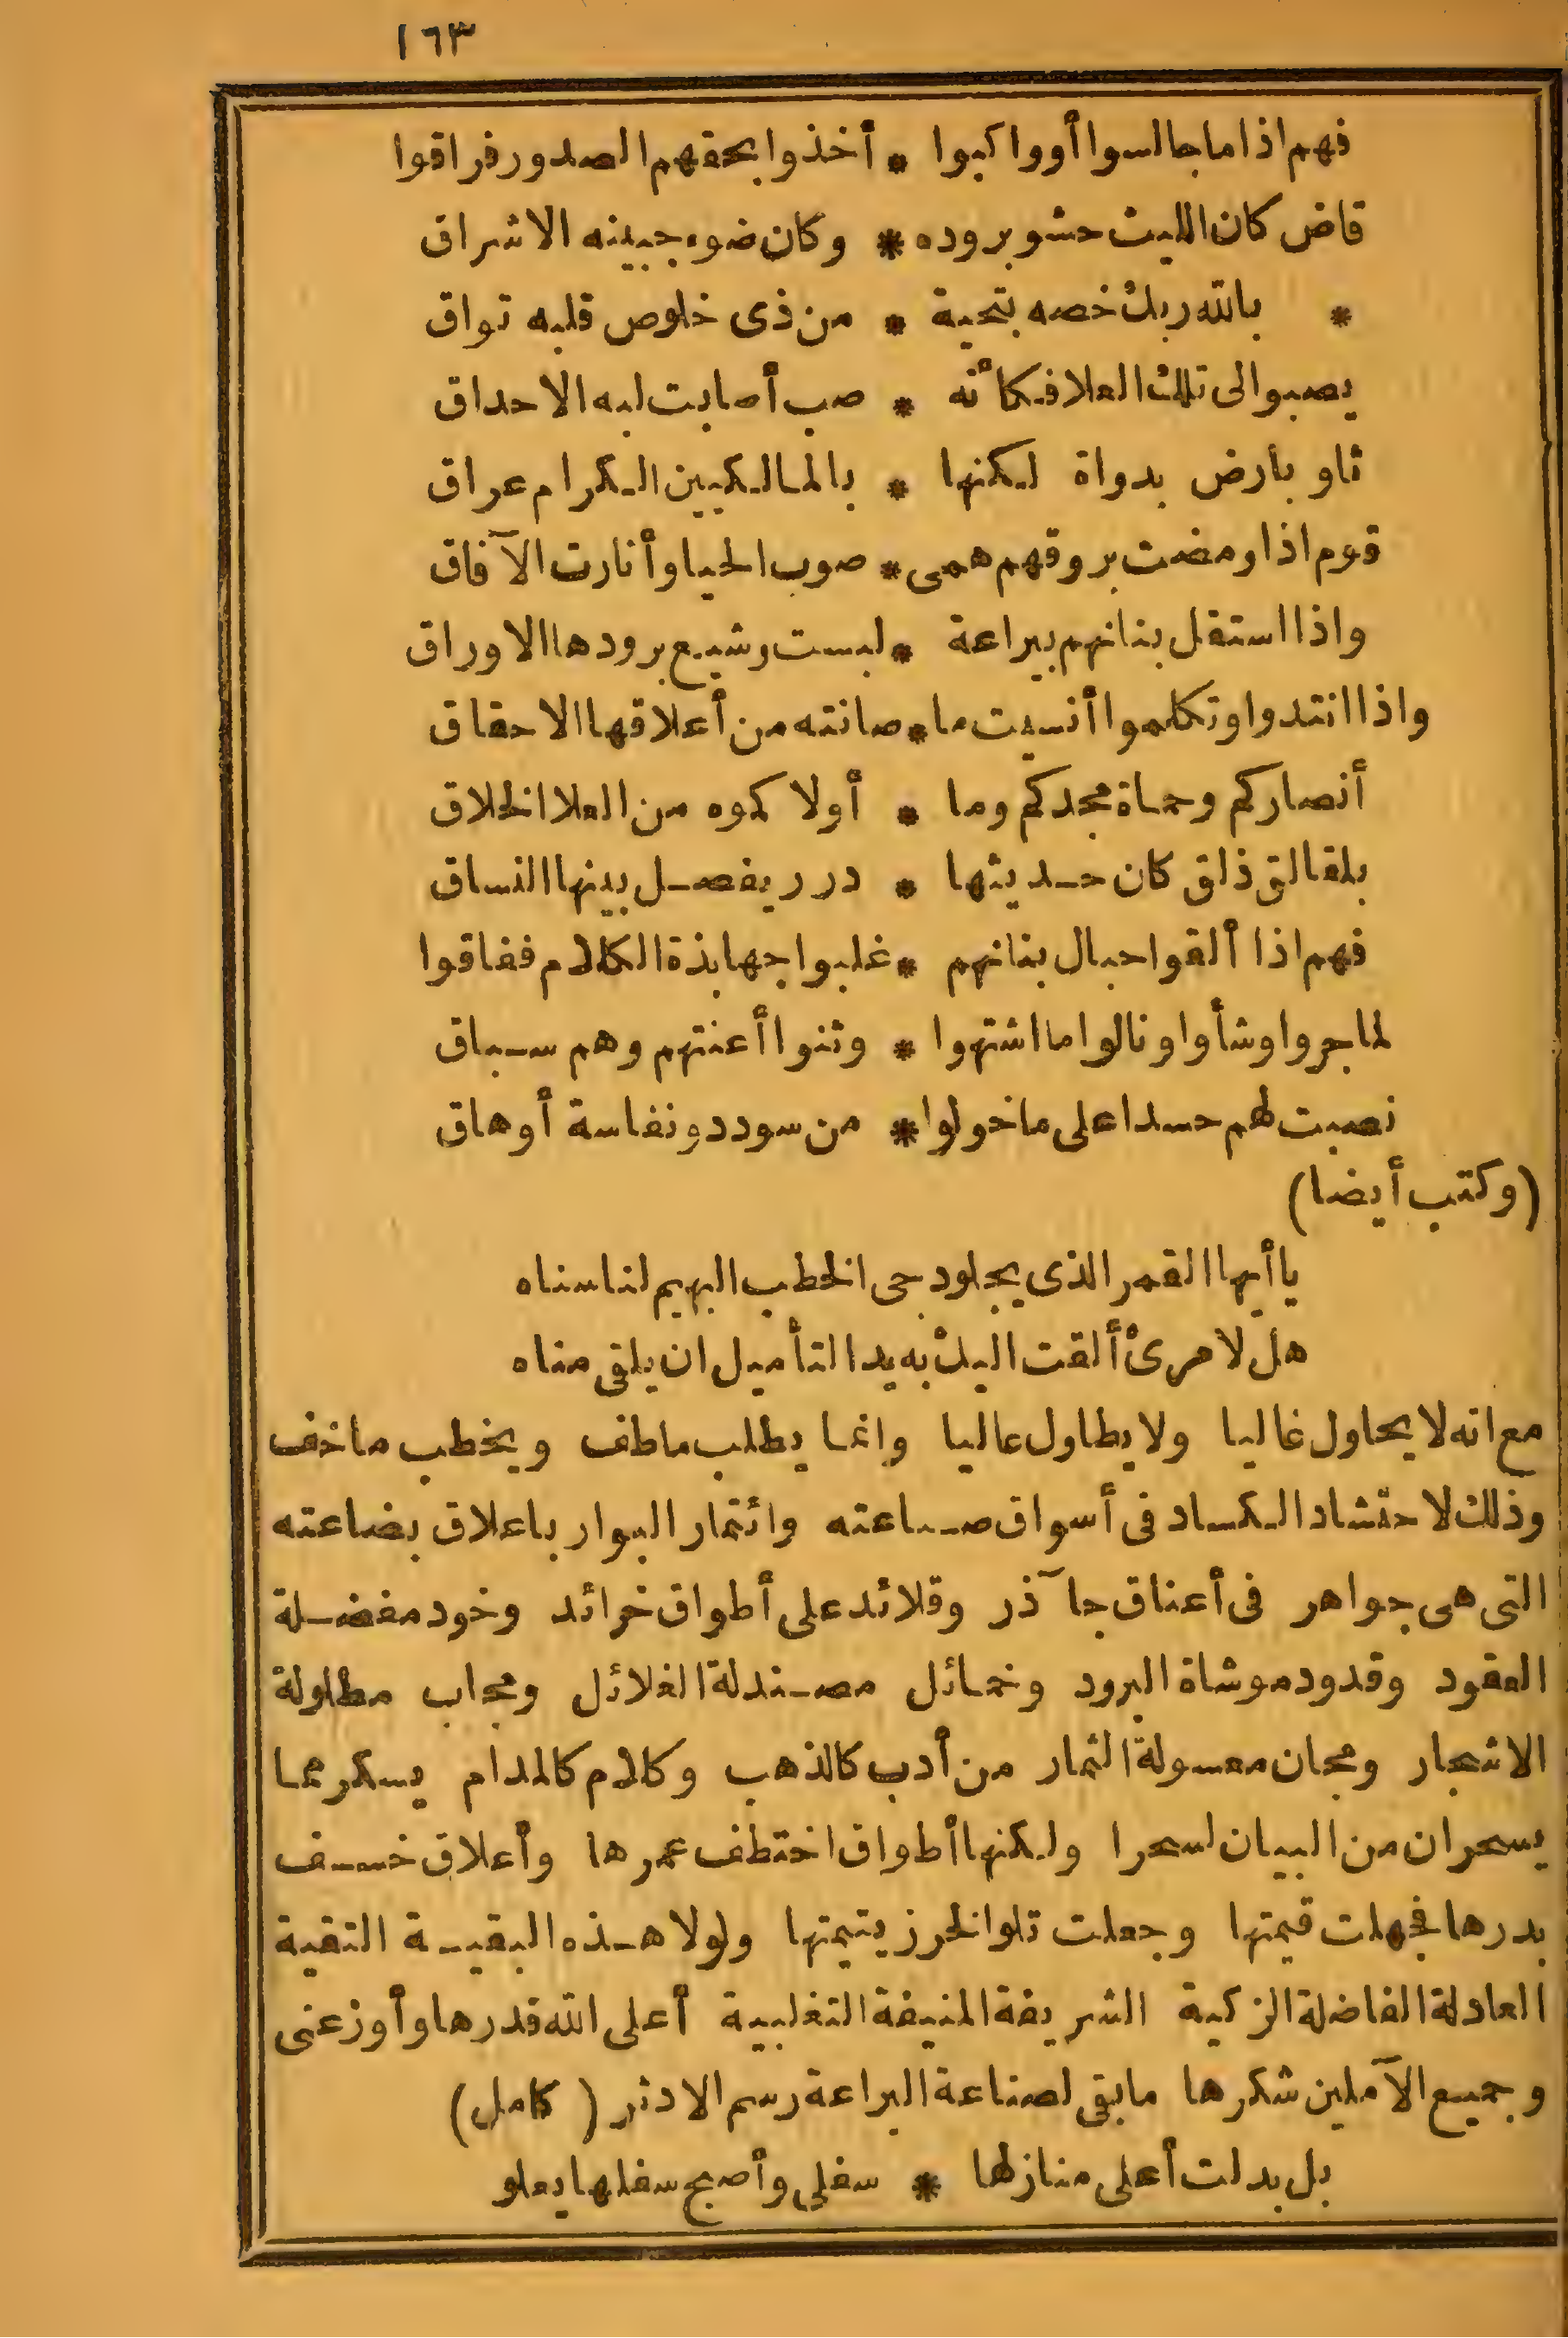 ١٦٣
فهم اذا ما جالسوا أو واكبوا * أخذوا بحقهم الصدور فراقوا
قاض كان الليث حشو بروده * وكان ضوء جبينه الاشراق
* بالله ربك خصه بتحية * من ذى خلوص قلبه تواق
يصبو الى تلك العلا فكأنه * صب أصابت لبه الاحداق
ثاو بارض بدواة لكنها * بالمالكيين الكرام عراق
قوم اذا ومضت بروقهم همى * صوب الحيا وأنارت الآفاق
واذا استقل بنانهم ببراعة * لبست وشيع برودها الاوراق
واذا انتدوا وتكلموا أنسيت ما * صانته من أعلاقها الاحقاق
أنصاركم وحماة مجدكم وما * أولا كموه من العلا الخلاق
بلقالق ذلق كان حديثها * درر يفصل بينها النساق
فهم اذا ألقوا حبال بنانهم * غلبوا جهابذة الكلام ففاقوا
لما جروا وشأوا ونالوا ما اشتهوا * وثنوا أعنتهم وهم سباق
نصبت لهم حسدا على ما خولوا * من سودد ونفاسة أوهاق
(وكتب أيضا)
يا أيها القمر الذى يجلو دجى الخطب البهيم لنا سناه
هل لامرئ ألقت اليك به يد التأميل ان يلقى مناه
مع انه لا يحاول غاليا ولا يطاول عاليا وانما يطلب ما طف ويخطب ما خف
وذلك لاحتشاد الكساد فى أسواق صناعته وائتمار البوار باعلاق بضاعته
التى هى جواهر فى أعناق جاآذر وقلائد على أطواق خرائد وخود مفضلة
العقود وقدود موشاة البرود وخمائل مصندلة الغلائل ومجاب مطلولة
الاشجار ومجان معسولة الثمار من أدب كالذهب وكلام كالمدام يسكر مما
يسحر ان من البيان لسحرا ولكنها أطواق اختطف عمرها وأعلاق خسف
بدرها فجهلت قيمتها وجعلت تلو الخرز يتيمتها ولولا هذه البقية التقية
العادلة الفاضلة الزكية الشريفة المنيفة التغلبية أعلى الله قدرها وأوزعنى
وجميع الآملين شكرها ما بقى لصناعة البراعة رسم الا دثر (كامل)
بل بدلت أعلى منازلها * سفلى وأصبح سفلها يعلو